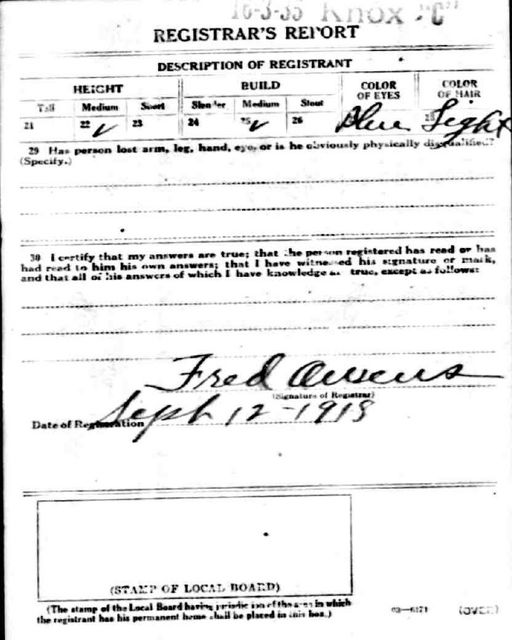 16-3-35 Knox "C"
REGISTRAR'S REPORT
DESCRIPTION OF REGISTRANT
HEIGHT BUILD COLOR OF EYES COLOR OF HAIR
Tall Medium Short Slender Medium Stout
21 22 ✓ 23 24 25 ✓ 26 Blue 28 Light
29 Has person lost arm, leg, hand, eye, or is he obviously physically disqualified?
(Specify.)
30 I certify that my answers are true; that the person registered has read or has
had read to him his own answers; that I have witnessed his signature or mark,
and that all of his answers of which I have knowledge are true, except as follows:
Fred Owens
(Signature of Registrar)
Date of Registration Sept 12-1918
(STAMP OF LOCAL BOARD)
(The stamp of the Local Board having jurisdiction of the area in which
the registrant has his permanent home shall be placed in this box.)
03-6171 (OVER)